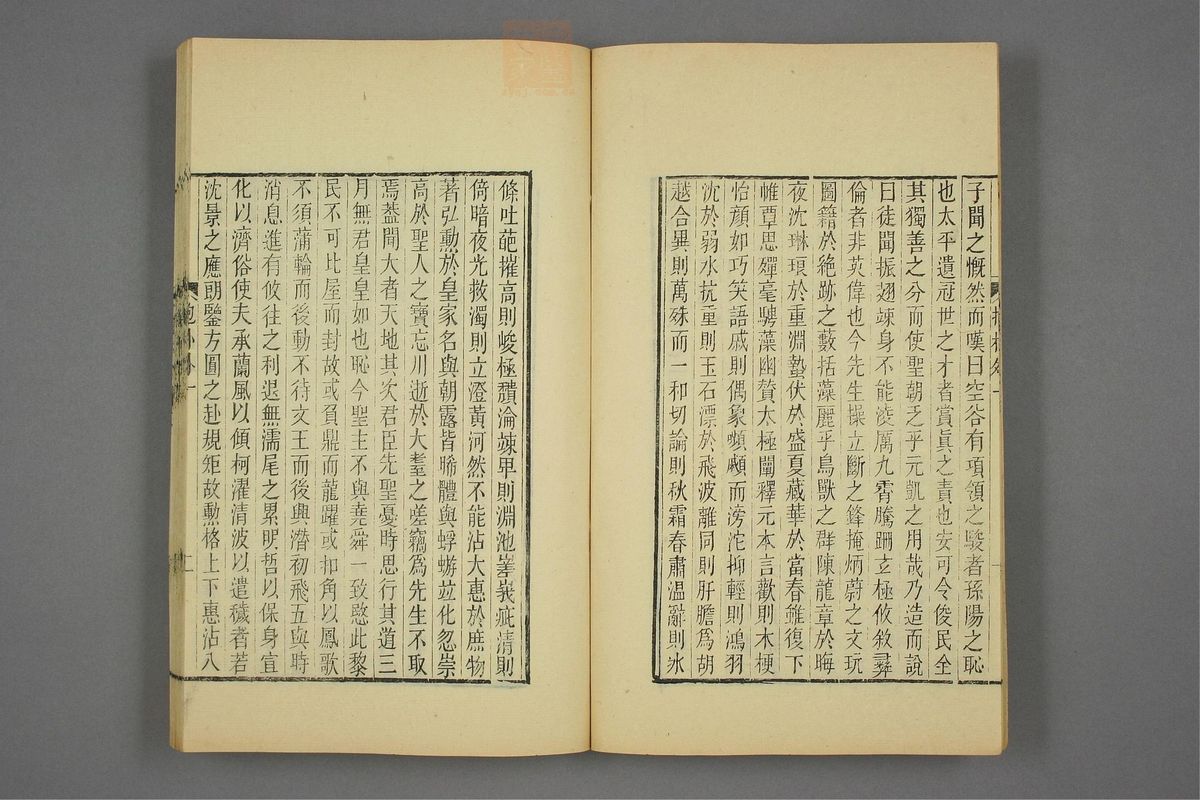 子聞之慨然而嘆曰空谷有項領之駿者孫陽之恥
也太平遺冠世之才者賞眞之責也安可令俊民全
其獨善之分而使聖朝乏乎元凱之用哉乃造而說
曰徒聞振翅竦身不能淩厲九霄騰跚玄極攸敘彞
倫者非英偉也今先生操立斷之鋒掩炳蔚之文玩
圖籍於絶跡之藪括藻麗乎鳥獸之群陳龍章於晦
夜沈琳琅於重淵蟄伏於盛夏藏華於當春雖復下
帷覃思殫毫騁藻幽贊太極闡釋元本言歡則木梗
怡顏如巧笑語戚則偶象嚬顣而滂沱抑輕則鴻羽
沈於弱水抗重則玉石漂於飛波離同則肝膽爲胡
越合異則萬殊而一和切論則秋霜春肅温辭則氷
條吐葩摧高則峻極頽淪竦卑則淵池嵳峩疵清則
倚暗夜光救濁則立澄黃河然不能沾大惠於庶物
著弘勳於皇家名與朝露皆晞體與蜉蝣竝化忽崇
高於聖人之寶忘川逝於大耋之嗟竊爲先生不取
焉葢聞大者天地其次君臣先聖憂時思行其道三
月無君皇皇如也恥今聖主不與堯舜一致愍此黎
民不可比屋而封故或負鼎而龍躍或扣角以鳳歌
不須蒲輪而後動不待文王而後興潛初飛五與時
消息進有攸往之利退無濡尾之累明哲以保身宣
化以濟俗使夫承蘭風以傾柯濯清波以遣穢者若
沈景之應朗鑒方圓之赴規矩故勳格上下惠沾八